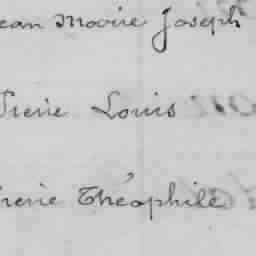 ean Marie Joseph
Pierre Louis
Pierre Théophile